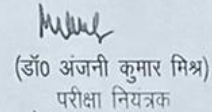 (डॉ0 अंजनी कुमार मिश्र)
परीक्षा नियंत्रक